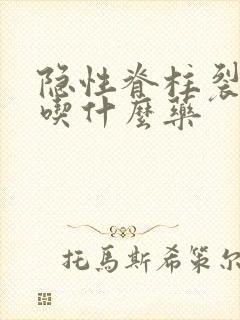 隐性脊柱裂
喫什麼藥
托馬斯希策尔